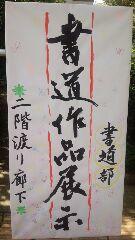 書道部
書道作品展示
二階渡り廊下